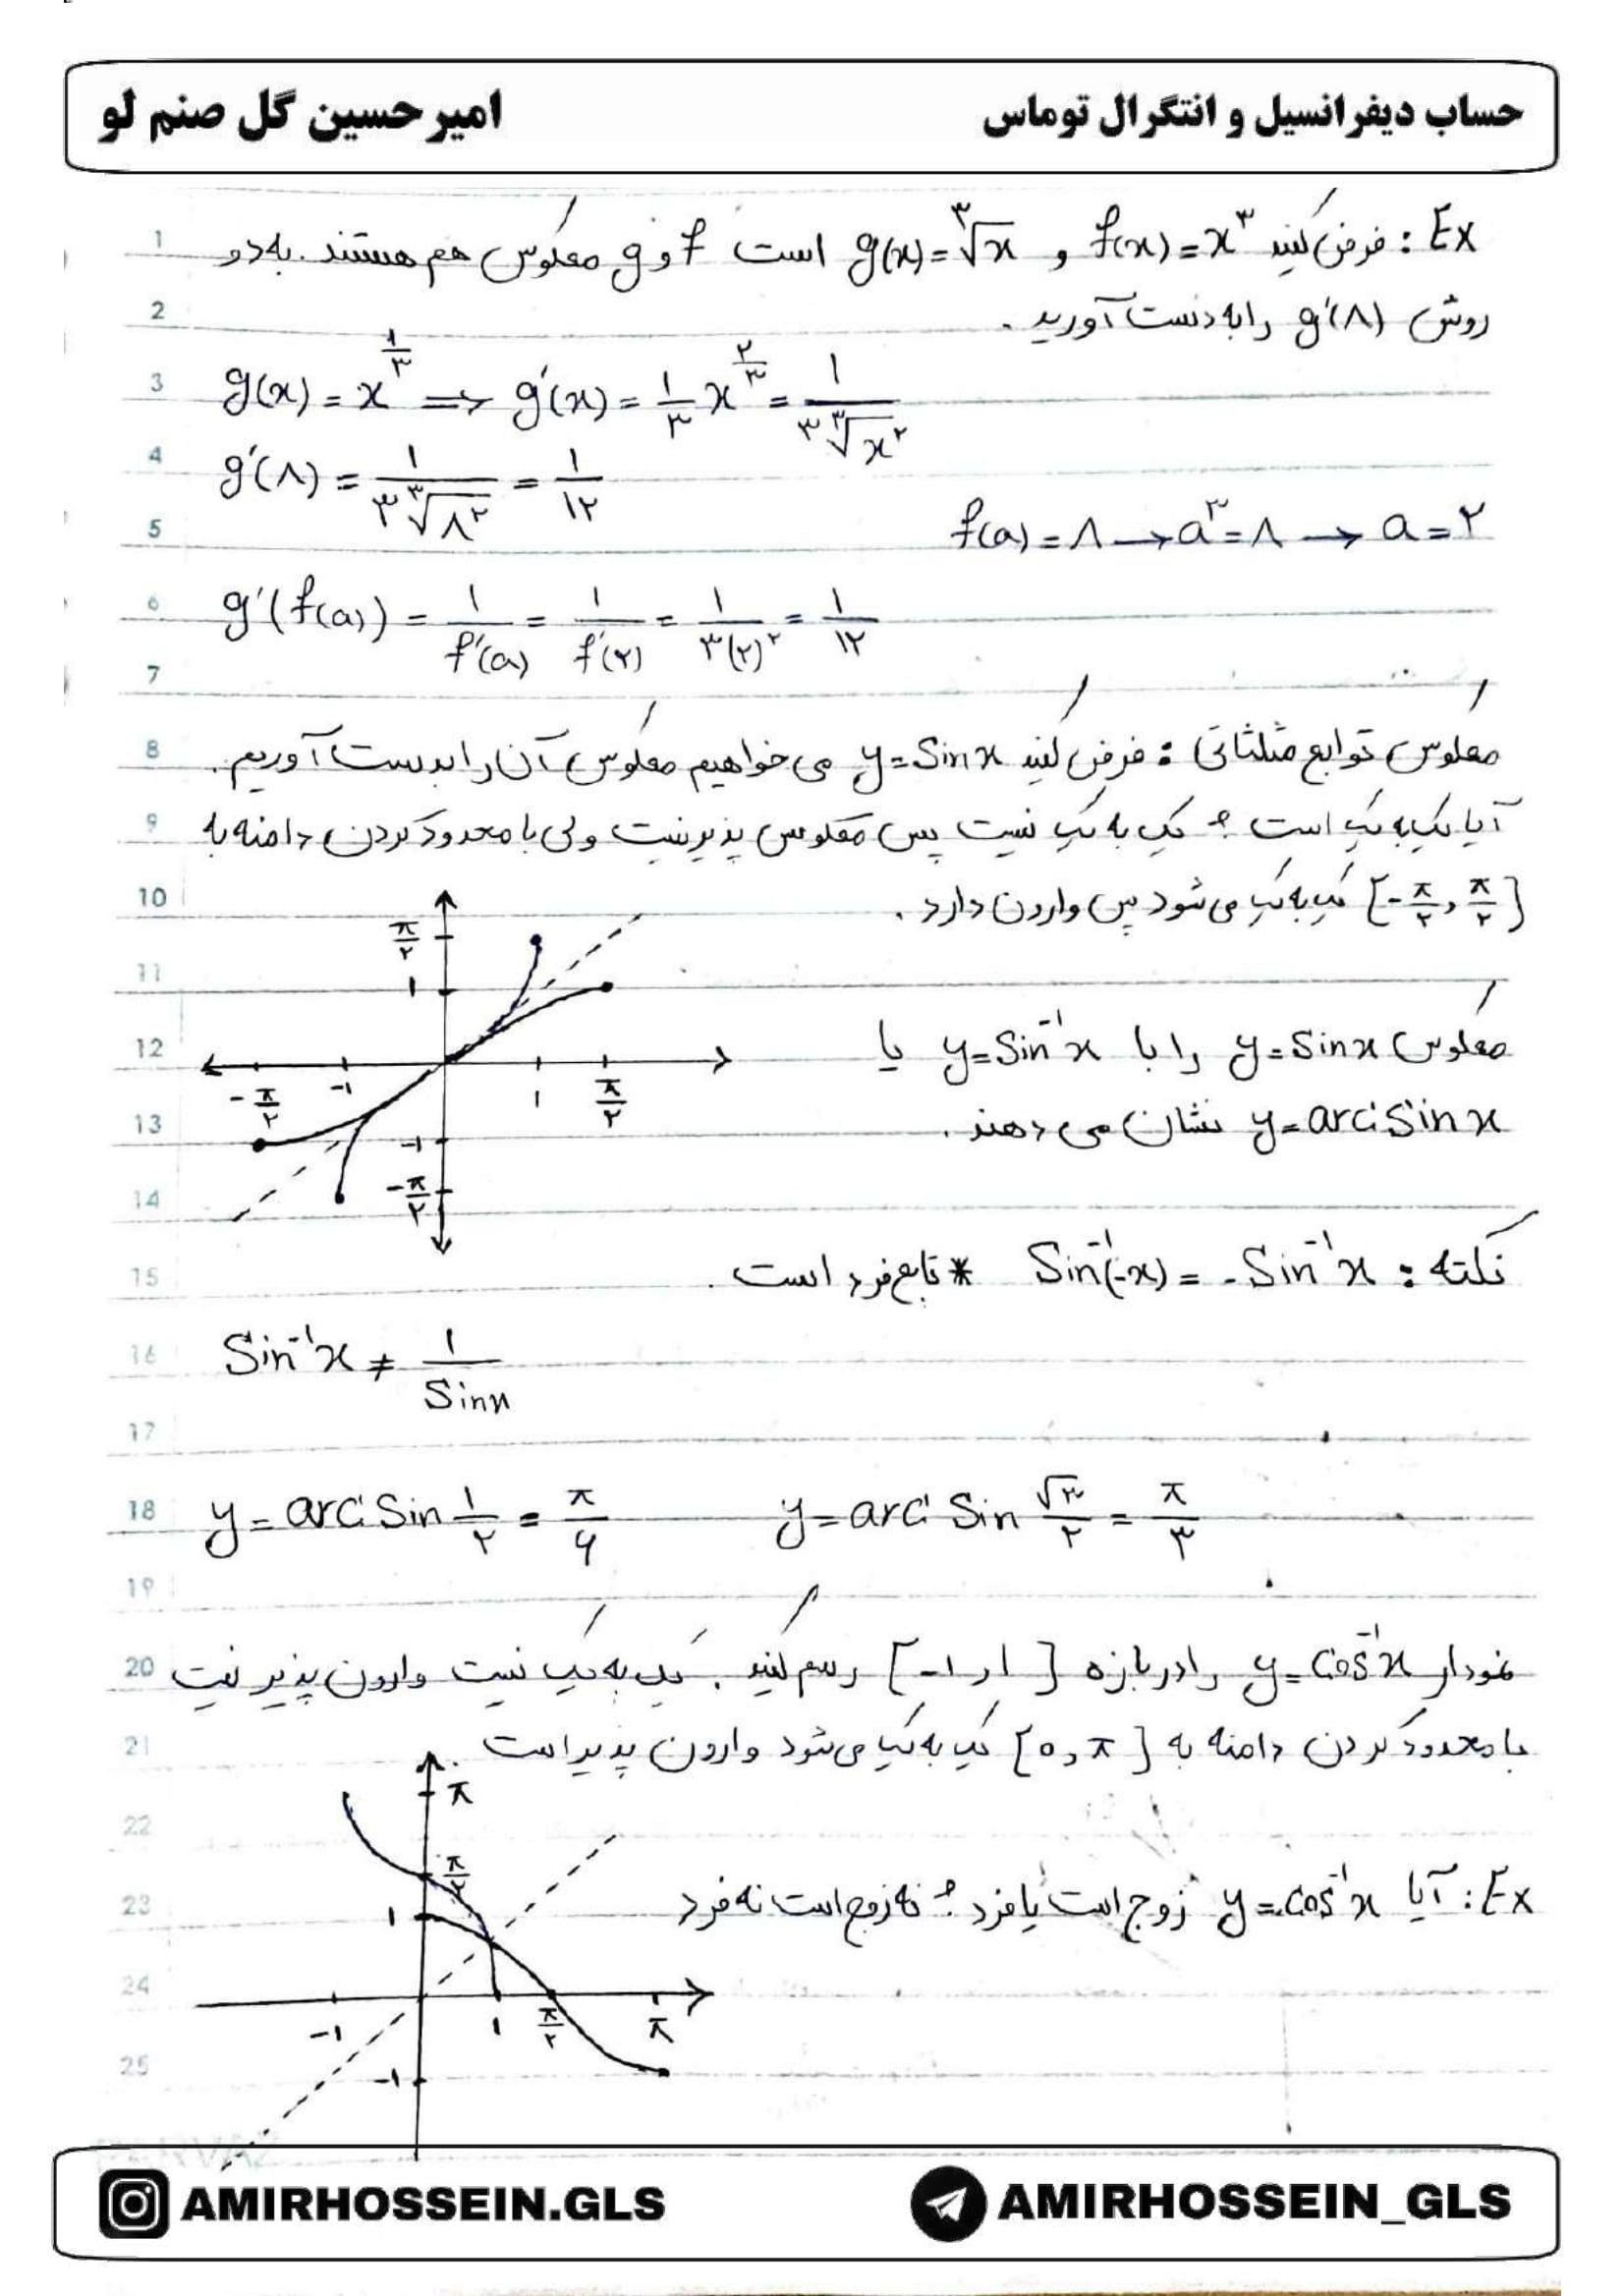 حساب دیفرانسیل و انتگرال توماس
امیر حسین گل صنم لو
1 Ex : فرض کنید f(x) = x^۳ و g(x) = ∛x است f و g معکوس هم هستند. به دو
2 روش g'(۸) را به دست آورید .
3 g(x) = x^{۱/۳} => g'(x) = ۱/۳ x^{۲/۳} = ۱/(۳ ∛x^۲)
4 g'(۸) = ۱/(۳ ∛۸^۲) = ۱/۱۲
5 f(a) = ۸ → a^۳ = ۸ → a = ۲
6 g'(f(a)) = ۱/f'(a) = ۱/f'(۲) = ۱/۳(۲)^۲ = ۱/۱۲
7
8 معکوس توابع مثلثاتی : فرض کنید y = Sin x می خواهیم معکوس آن را بدست آوریم.
9 آیا یک به یک است ؟ یک به یک نیست پس معکوس پذیر نیست ولی با محدود کردن دامنه به
10 [-π/۲ , π/۲] یک به یک می شود پس وارون دارد .
π/۲
11
1
12 معکوس y = Sin x را با y = Sin^{-1} x یا
-π/۲ -1 1 π/۲
13 y = arc Sin x نشان می دهند .
-1
14
-π/۲
15 نکته : Sin^{-1}(-x) = - Sin^{-1} x * تابع فرد است .
16 Sin^{-1} x ≠ ۱/Sin x
17
18 y = arc Sin ۱/۲ = π/۶ y = arc Sin √۳/۲ = π/۳
19
20 نمودار y = Cos^{-1} x را در بازه [-۱ ر ۱] رسم کنید . یک به یک نیست وارون پذیر نیست
21 با محدود کردن دامنه به [۰ , π] یک به یک می شود وارون پذیر است .
π
22
π/۲
23 Ex : آیا y = Cos^{-1} x زوج است یا فرد ؟ نه زوج است نه فرد
1
24
-1 1 π/۲ π
25
-1
AMIRHOSSEIN.GLS
AMIRHOSSEIN_GLS